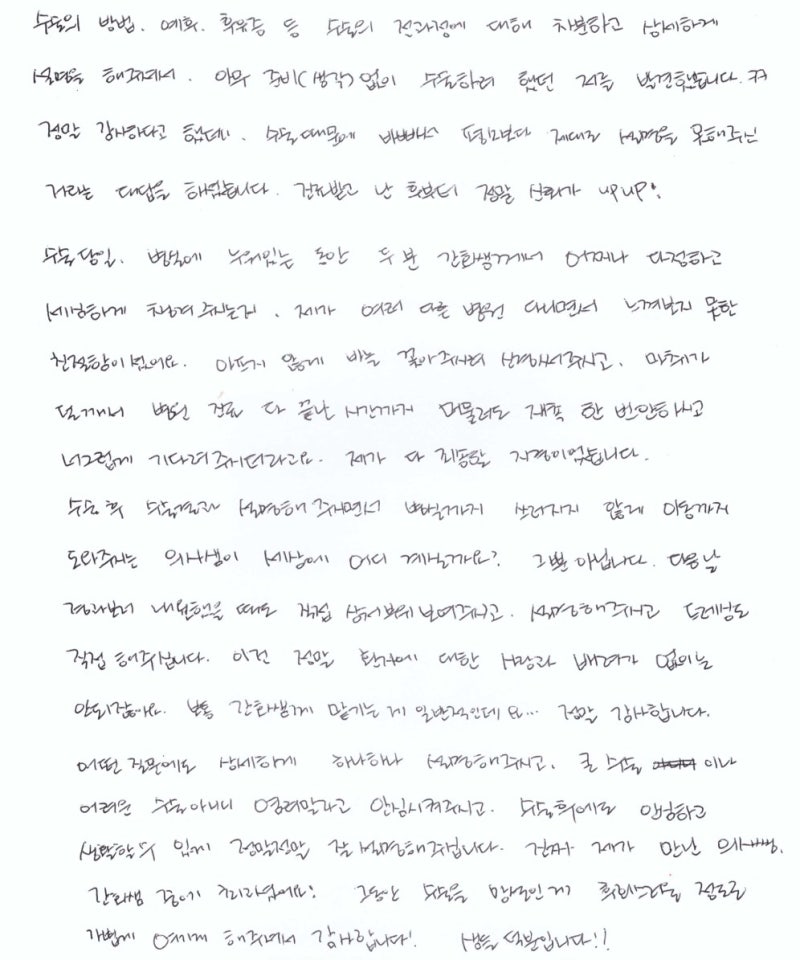 수술의 방법. 예후. 후유증 등 수술의 전과정에 대해 차분하고 상세하게
설명을 해주셔서. 아무 준비(생각)없이 수술하려 했던 저를 발견했답니다. ㅋㅋ
정말 감사하다고 했더니. 수술때문에 바빠서 평소보다 제대로 설명을 못해주신
거라는 대답을 해왔답니다. 진료받고 난 후부터 정말 신뢰가 up up!
수술당일. 병원에 누워있는 동안 두 분 간호쌤께서 어찌나 다정하고
세심하게 챙겨주시는지. 제가 여러 다른 병원 다니면서 느껴보지 못한
친절함이었어요. 아프지 않게 바늘 꽂아주시려 신경써주시고. 마취가
덜깨서 병원 진료 다 끝난 시간까지 머물러도 재촉 한 번 안하시고
너그럽게 기다려주시더라고요. 제가 다 죄송할 지경이었답니다.
수술 후 수술결과 설명해 주시면서 쓰러지지 않게 이동까지
도와주시는 의사쌤이 세상에 어디 계실까요? 그뿐 아닙니다. 다음날
경과보러 내원했을 때도 직접 상처부위 보여주시고. 설명해주시고 드레싱도
직접 해주십니다. 이건 정말 환자에 대한 사랑과 배려가 없으면
안되잖아요. 보통 간호쌤께 맡기는 게 일반적인데요... 정말 감사합니다.
어떤 질문에도 상세하게 하나하나 설명해주시고. 큰 수술이나
어려운 수술아니니 염려말라고 안심시켜주시고. 수술후에도 안심하고
생활할 수 있게 정말정말 잘 설명해주십니다. 진짜 제가 만난 의사쌤.
간호쌤 중에 최고셨어요! 그동안 수술을 망설인게 후회스러울 정도로
가볍게 해주셔서 감사합니다! 쌤들 덕분입니다!!